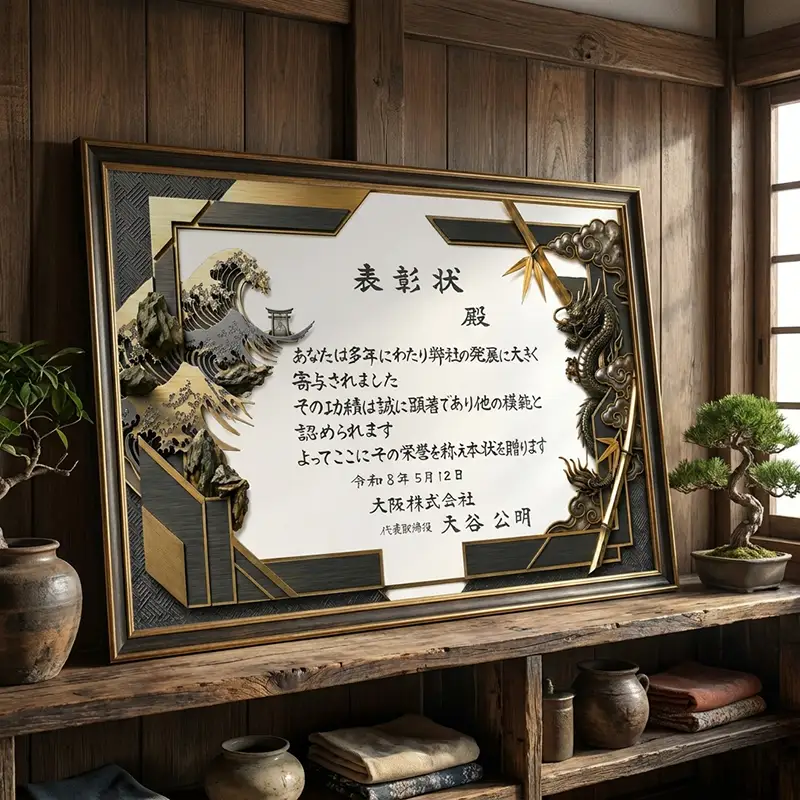 表彰状
殿
あなたは多年にわたり弊社の発展に大きく
寄与されました
その功績は誠に顕著であり他の模範と
認められます
よってここにその栄誉を称え本状を贈ります
令和8年5月12日
大阪株式会社
代表取締役 天谷 公明